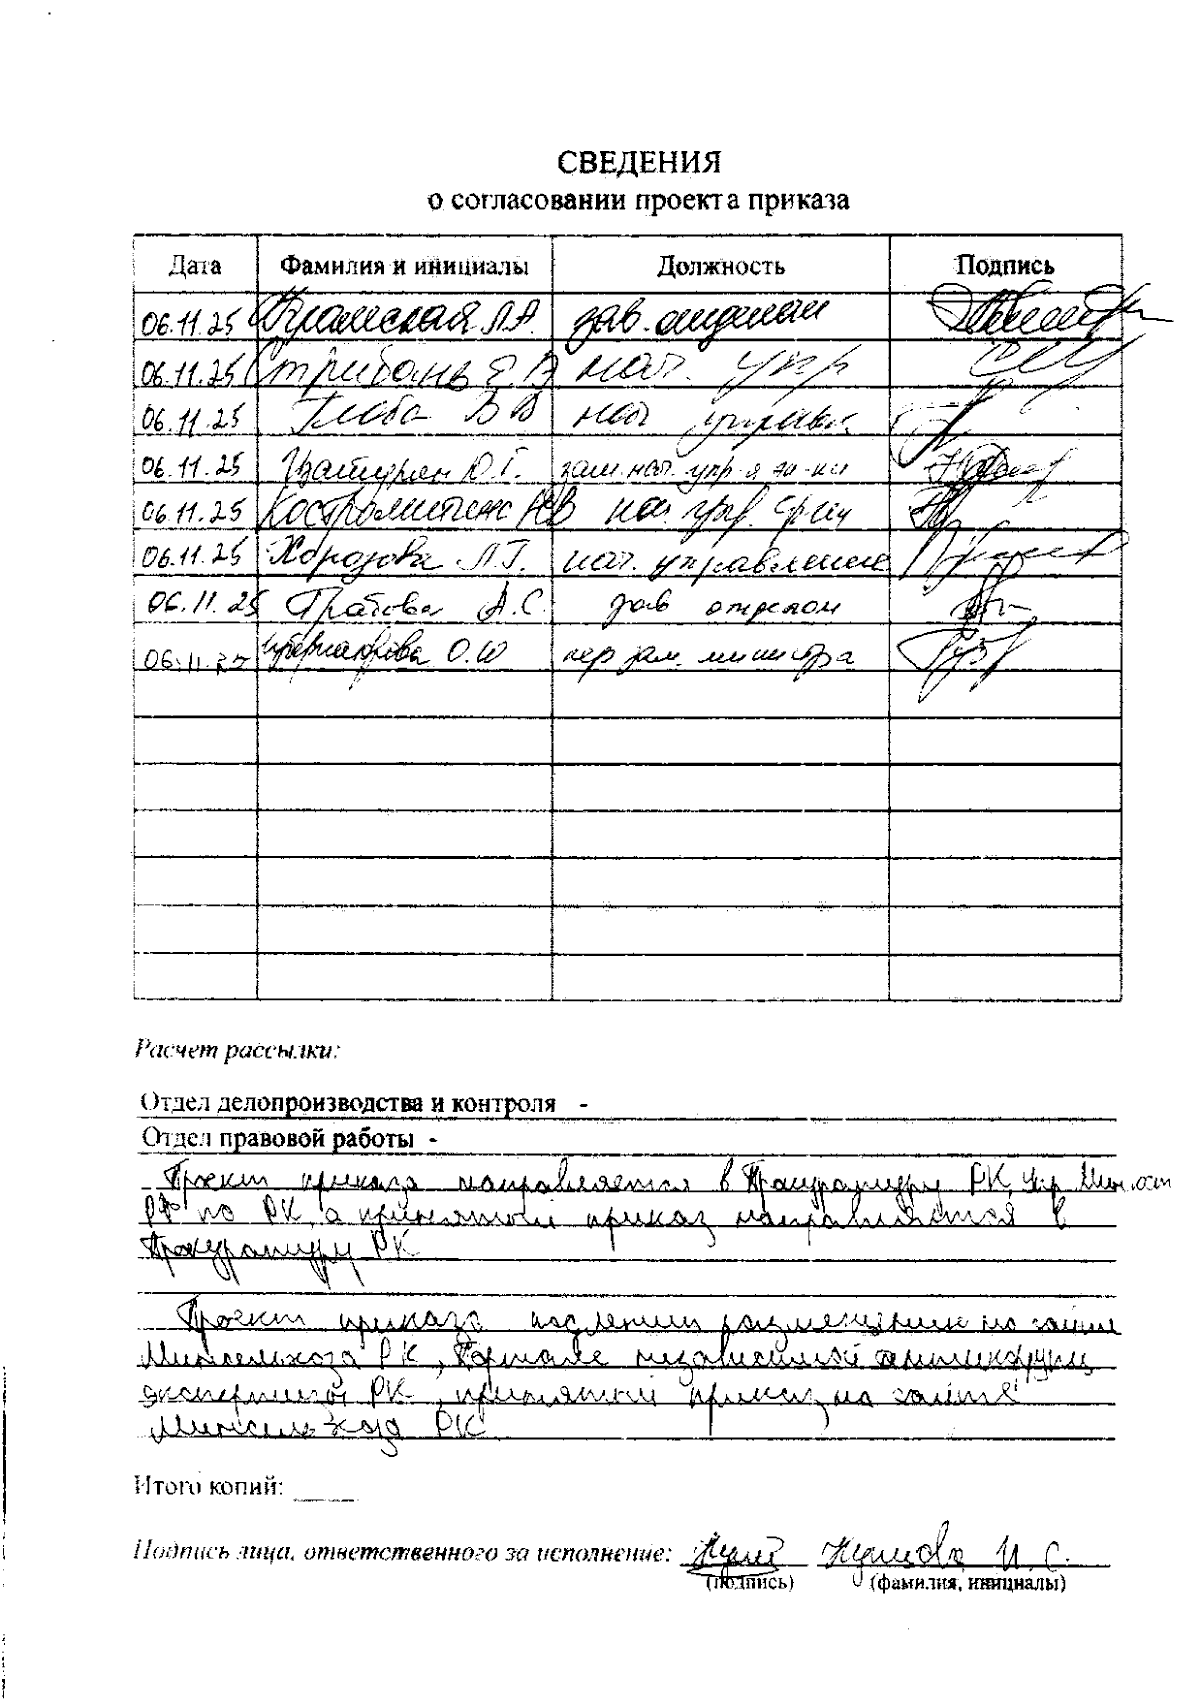 СВЕДЕНИЯ
о согласовании проекта приказа
Дата Фамилия и инициалы Должность Подпись
06.11.25 Крамская Л.А. зав. отделом
06.11.25 Стрибань Е В нач. упр
06.11.25 Глоба В В нач управл
06.11.25 Цатурян Ю.Г. зам. нач. упр-я эк-ки
06.11.25 нач. упр. фин
06.11.25 Хорозова Л.Г. нач. управления
06.11.25 А.С. зав отделом
06.11.25 О.Ю пер зам. министра
Расчет рассылки:
Отдел делопроизводства и контроля -
Отдел правовой работы -
Проект приказа направляется в Прокуратуру РК, Упр. Минюст
РФ по РК, а принятый приказ направляется в
Прокуратуру РК
Проект приказа подлежит размещению на сайте
Минсельхоза РК, Портале независимой антикоррупц
экспертизы РК, принятый приказ на сайте
Минсельхоза РК
Итого копий:
Подпись лица, ответственного за исполнение: И. С.
(подпись) (фамилия, инициалы)